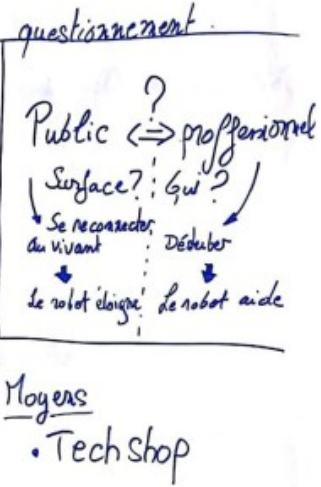 questionnement.
?
Public <=> proffessionnel
Surface? Qui?
Se reconnecter
du vivant
Déduber
Le robot éloigne
Le robot aide
Moyens
• Tech shop